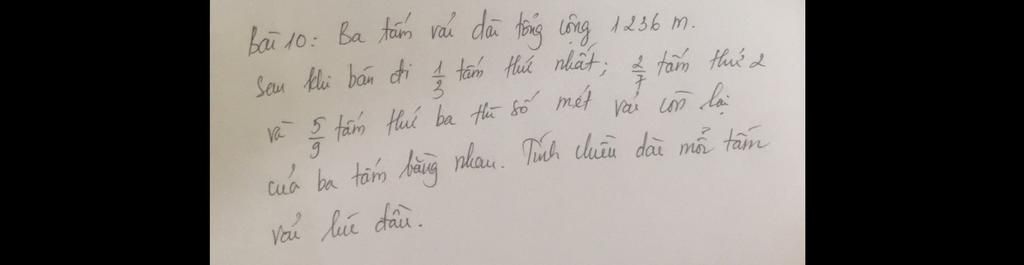 Bài 10: Ba tấm vải dài tổng cộng 1236 m.
Sau khi bán đi 1/3 tấm thứ nhất; 2/7 tấm thứ 2
và 5/9 tấm thứ ba thì số mét vải còn lại
của ba tấm bằng nhau. Tính chiều dài mỗi tấm
vải lúc đầu.